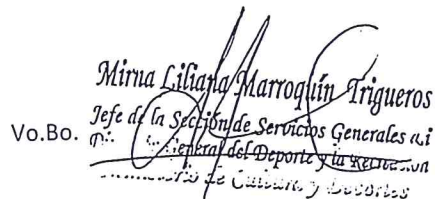 Mirna Liliana Marroquín Trigueros
Jefe de la Sección de Servicios Generales a.i
Vo.Bo.
General del Deporte y la Recreación
Ministerio de Cultura y Deportes